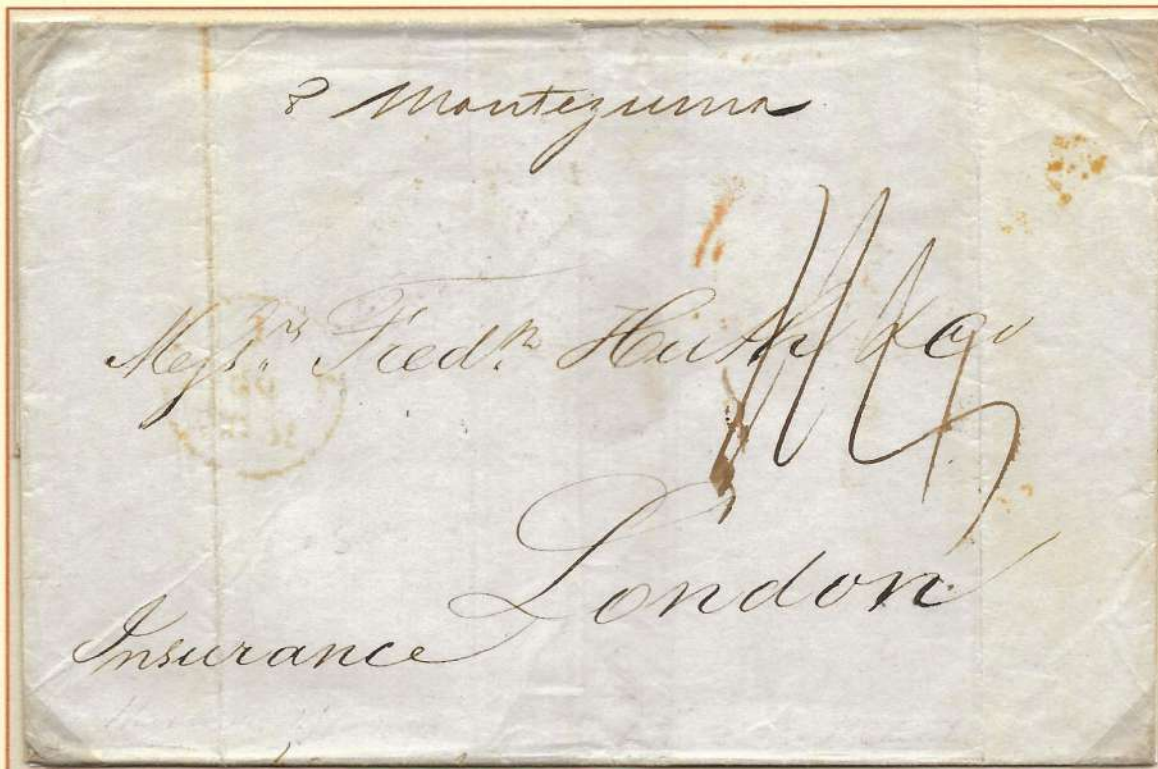 P Montezuma
Messrs Fredk Huth & Co
London
Insurance